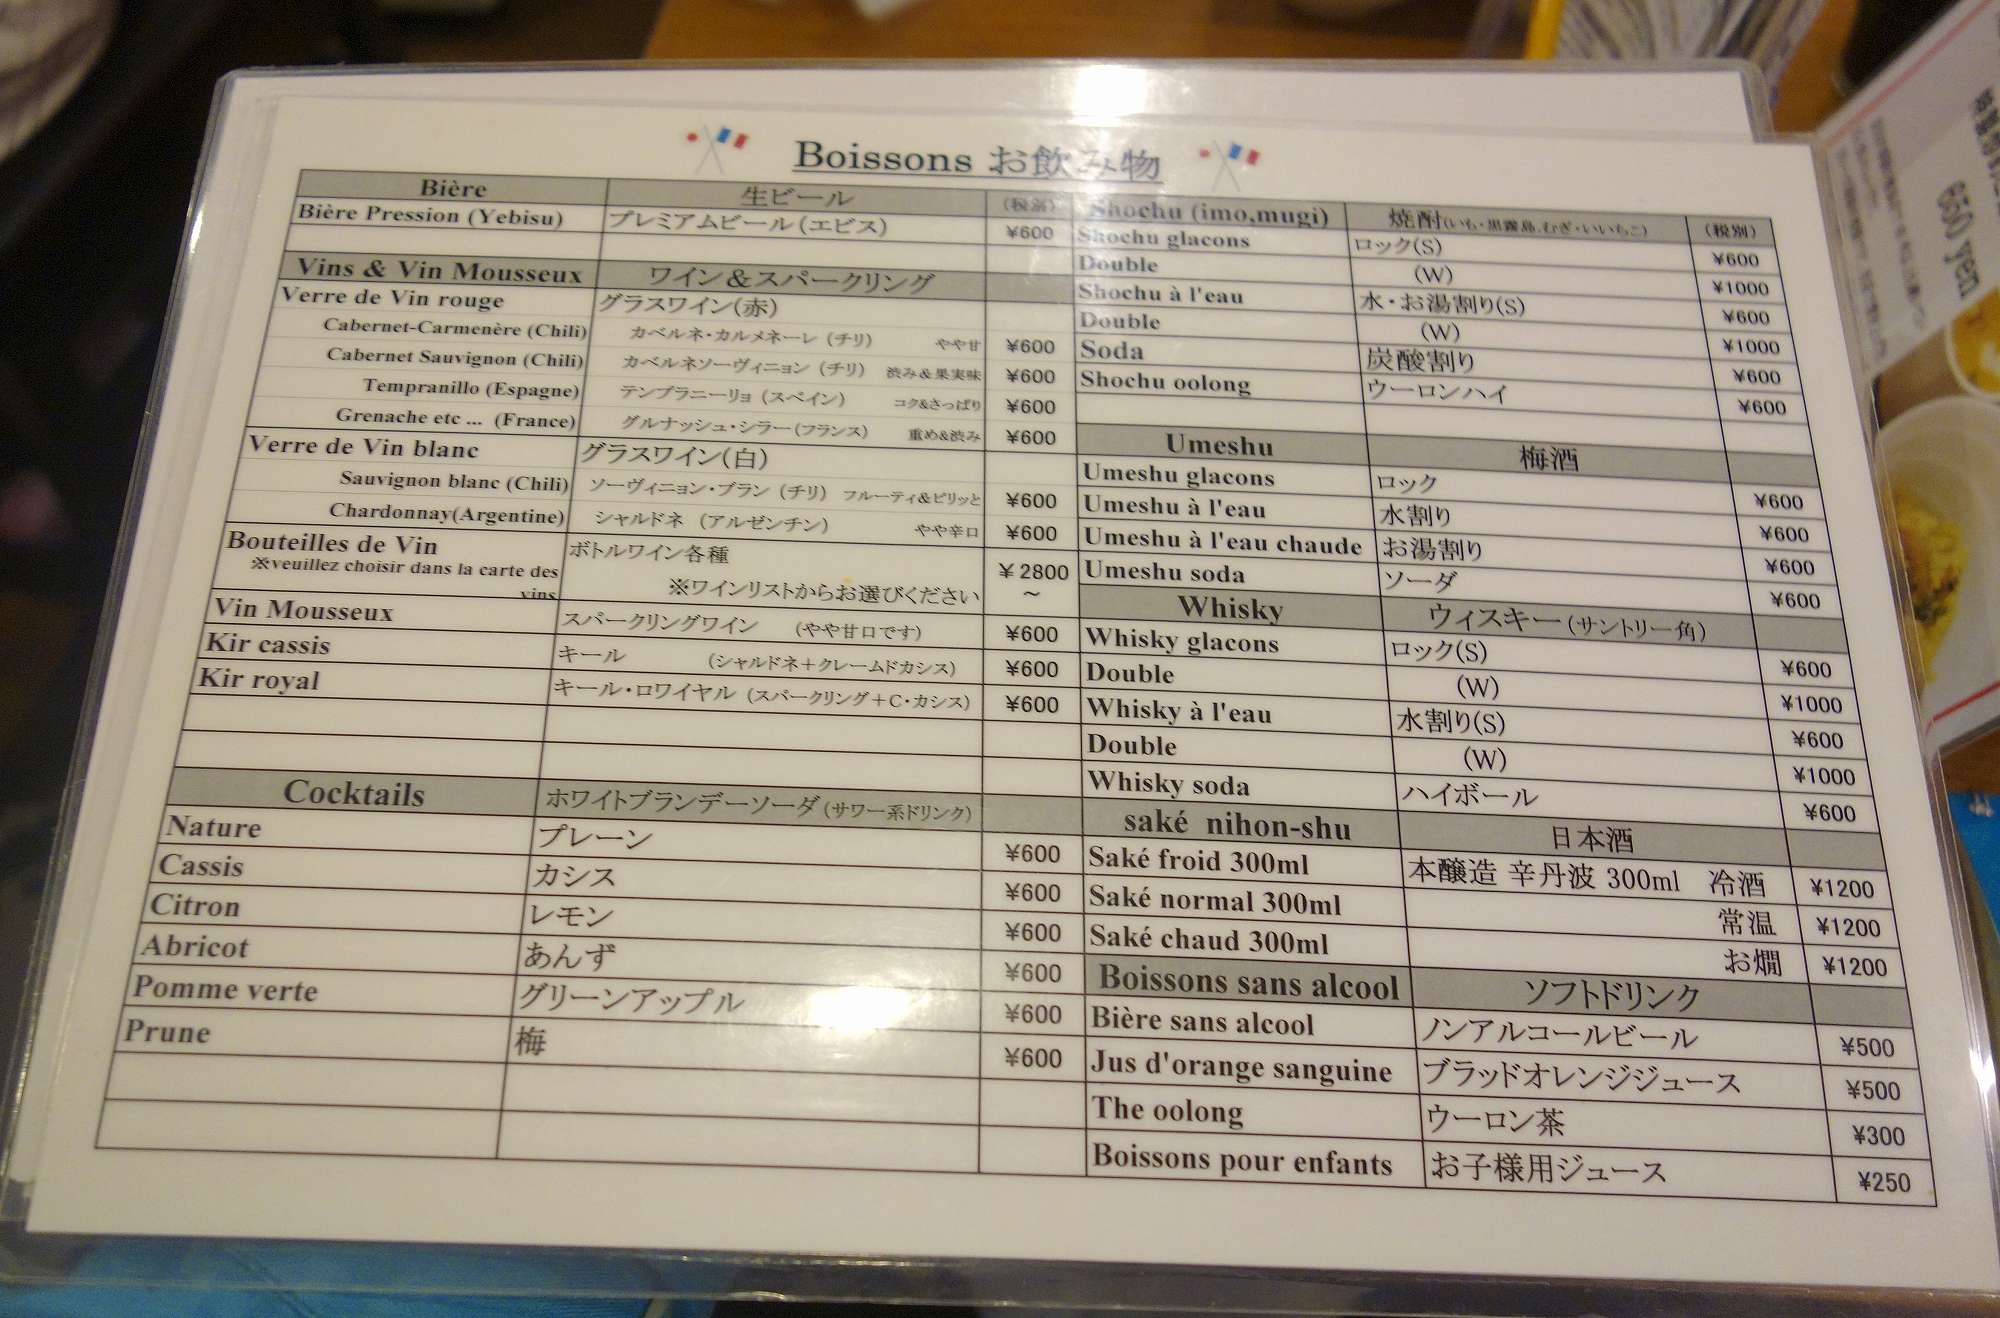 Boissons お飲み物
Bière 生ビール (税別)
Bière Pression (Yebisu) プレミアムビール(エビス) ¥600
Vins & Vin Mousseux ワイン&スパークリング
Verre de Vin rouge グラスワイン(赤)
Cabernet-Carmenère (Chili) カベルネ・カルメネーレ (チリ) やや甘 ¥600
Cabernet Sauvignon (Chili) カベルネソーヴィニョン (チリ) 渋み&果実味 ¥600
Tempranillo (Espagne) テンプラニーリョ (スペイン) コク&さっぱり ¥600
Grenache etc ... (France) グルナッシュ・シラー(フランス) 重め&渋み ¥600
Verre de Vin blanc グラスワイン(白)
Sauvignon blanc (Chili) ソーヴィニョン・ブラン (チリ) フルーティ&ピリッと ¥600
Chardonnay(Argentine) シャルドネ (アルゼンチン) やや辛口 ¥600
Bouteilles de Vin ボトルワイン各種 ¥2800
※veuillez choisir dans la carte des ※ワインリストからお選びください ～
vins
Vin Mousseux スパークリングワイン (やや甘口です) ¥600
Kir cassis キール (シャルドネ+クレームドカシス) ¥600
Kir royal キール・ロワイヤル (スパークリング+C・カシス) ¥600
Cocktails ホワイトブランデーソーダ(サワー系ドリンク)
Nature プレーン ¥600
Cassis カシス ¥600
Citron レモン ¥600
Abricot あんず ¥600
Pomme verte グリーンアップル ¥600
Prune 梅 ¥600
Shochu (imo,mugi) 焼酎(いも・黒霧島.むぎ・いいちこ) (税別)
Shochu glacons ロック(S) ¥600
Double (W) ¥1000
Shochu à l'eau 水・お湯割り(S) ¥600
Double (W) ¥1000
Soda 炭酸割り ¥600
Shochu oolong ウーロンハイ ¥600
Umeshu 梅酒
Umeshu glacons ロック ¥600
Umeshu à l'eau 水割り ¥600
Umeshu à l'eau chaude お湯割り ¥600
Umeshu soda ソーダ ¥600
Whisky ウィスキー(サントリー角)
Whisky glacons ロック(S) ¥600
Double (W) ¥1000
Whisky à l'eau 水割り(S) ¥600
Double (W) ¥1000
Whisky soda ハイボール ¥600
saké nihon-shu 日本酒
Saké froid 300ml 本醸造 辛丹波 300ml 冷酒 ¥1200
Saké normal 300ml 常温 ¥1200
Saké chaud 300ml お燗 ¥1200
Boissons sans alcool ソフトドリンク
Bière sans alcool ノンアルコールビール ¥500
Jus d'orange sanguine ブラッドオレンジジュース ¥500
The oolong ウーロン茶 ¥300
Boissons pour enfants お子様用ジュース ¥250
650 yen